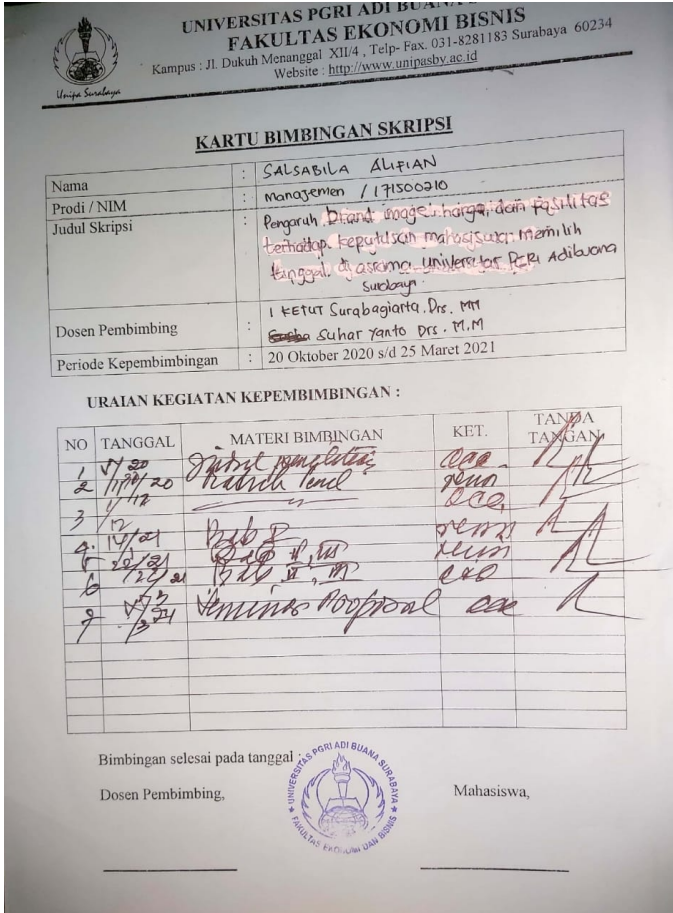 UNIVERSITAS PGRI ADI BUANA
FAKULTAS EKONOMI BISNIS
Kampus : Jl. Dukuh Menanggal XII/4 , Telp- Fax. 031-8281183 Surabaya 60234
Website : http://www.unipasby.ac.id
Unipa Surabaya
KARTU BIMBINGAN SKRIPSI
Nama : SALSABILA ALIFIAN
Prodi / NIM : manajemen / 171500210
Judul Skripsi : Pengaruh brand image, harga, dan fasilitas
terhadap keputusan mahasiswa memilih
tinggal di asrama universitas PGRI Adibuana
Surabaya.
I KETUT Surabagiarta. Drs. MM
Dosen Pembimbing : Suhar Yanto Drs. M.M
Periode Kepembimbingan : 20 Oktober 2020 s/d 25 Maret 2021
URAIAN KEGIATAN KEPEMBIMBINGAN :
NO TANGGAL MATERI BIMBINGAN KET. TANDA TANGAN
1 Judul acc
2
acc
3
4. Bab I
Bab II, III
6 Bab II, III acc
7 Seminar Proposal acc
Bimbingan selesai pada tanggal :
Dosen Pembimbing, Mahasiswa,
UNIVERSITAS PGRI ADI BUANA SURABAYA
FAKULTAS EKONOMI DAN BISNIS